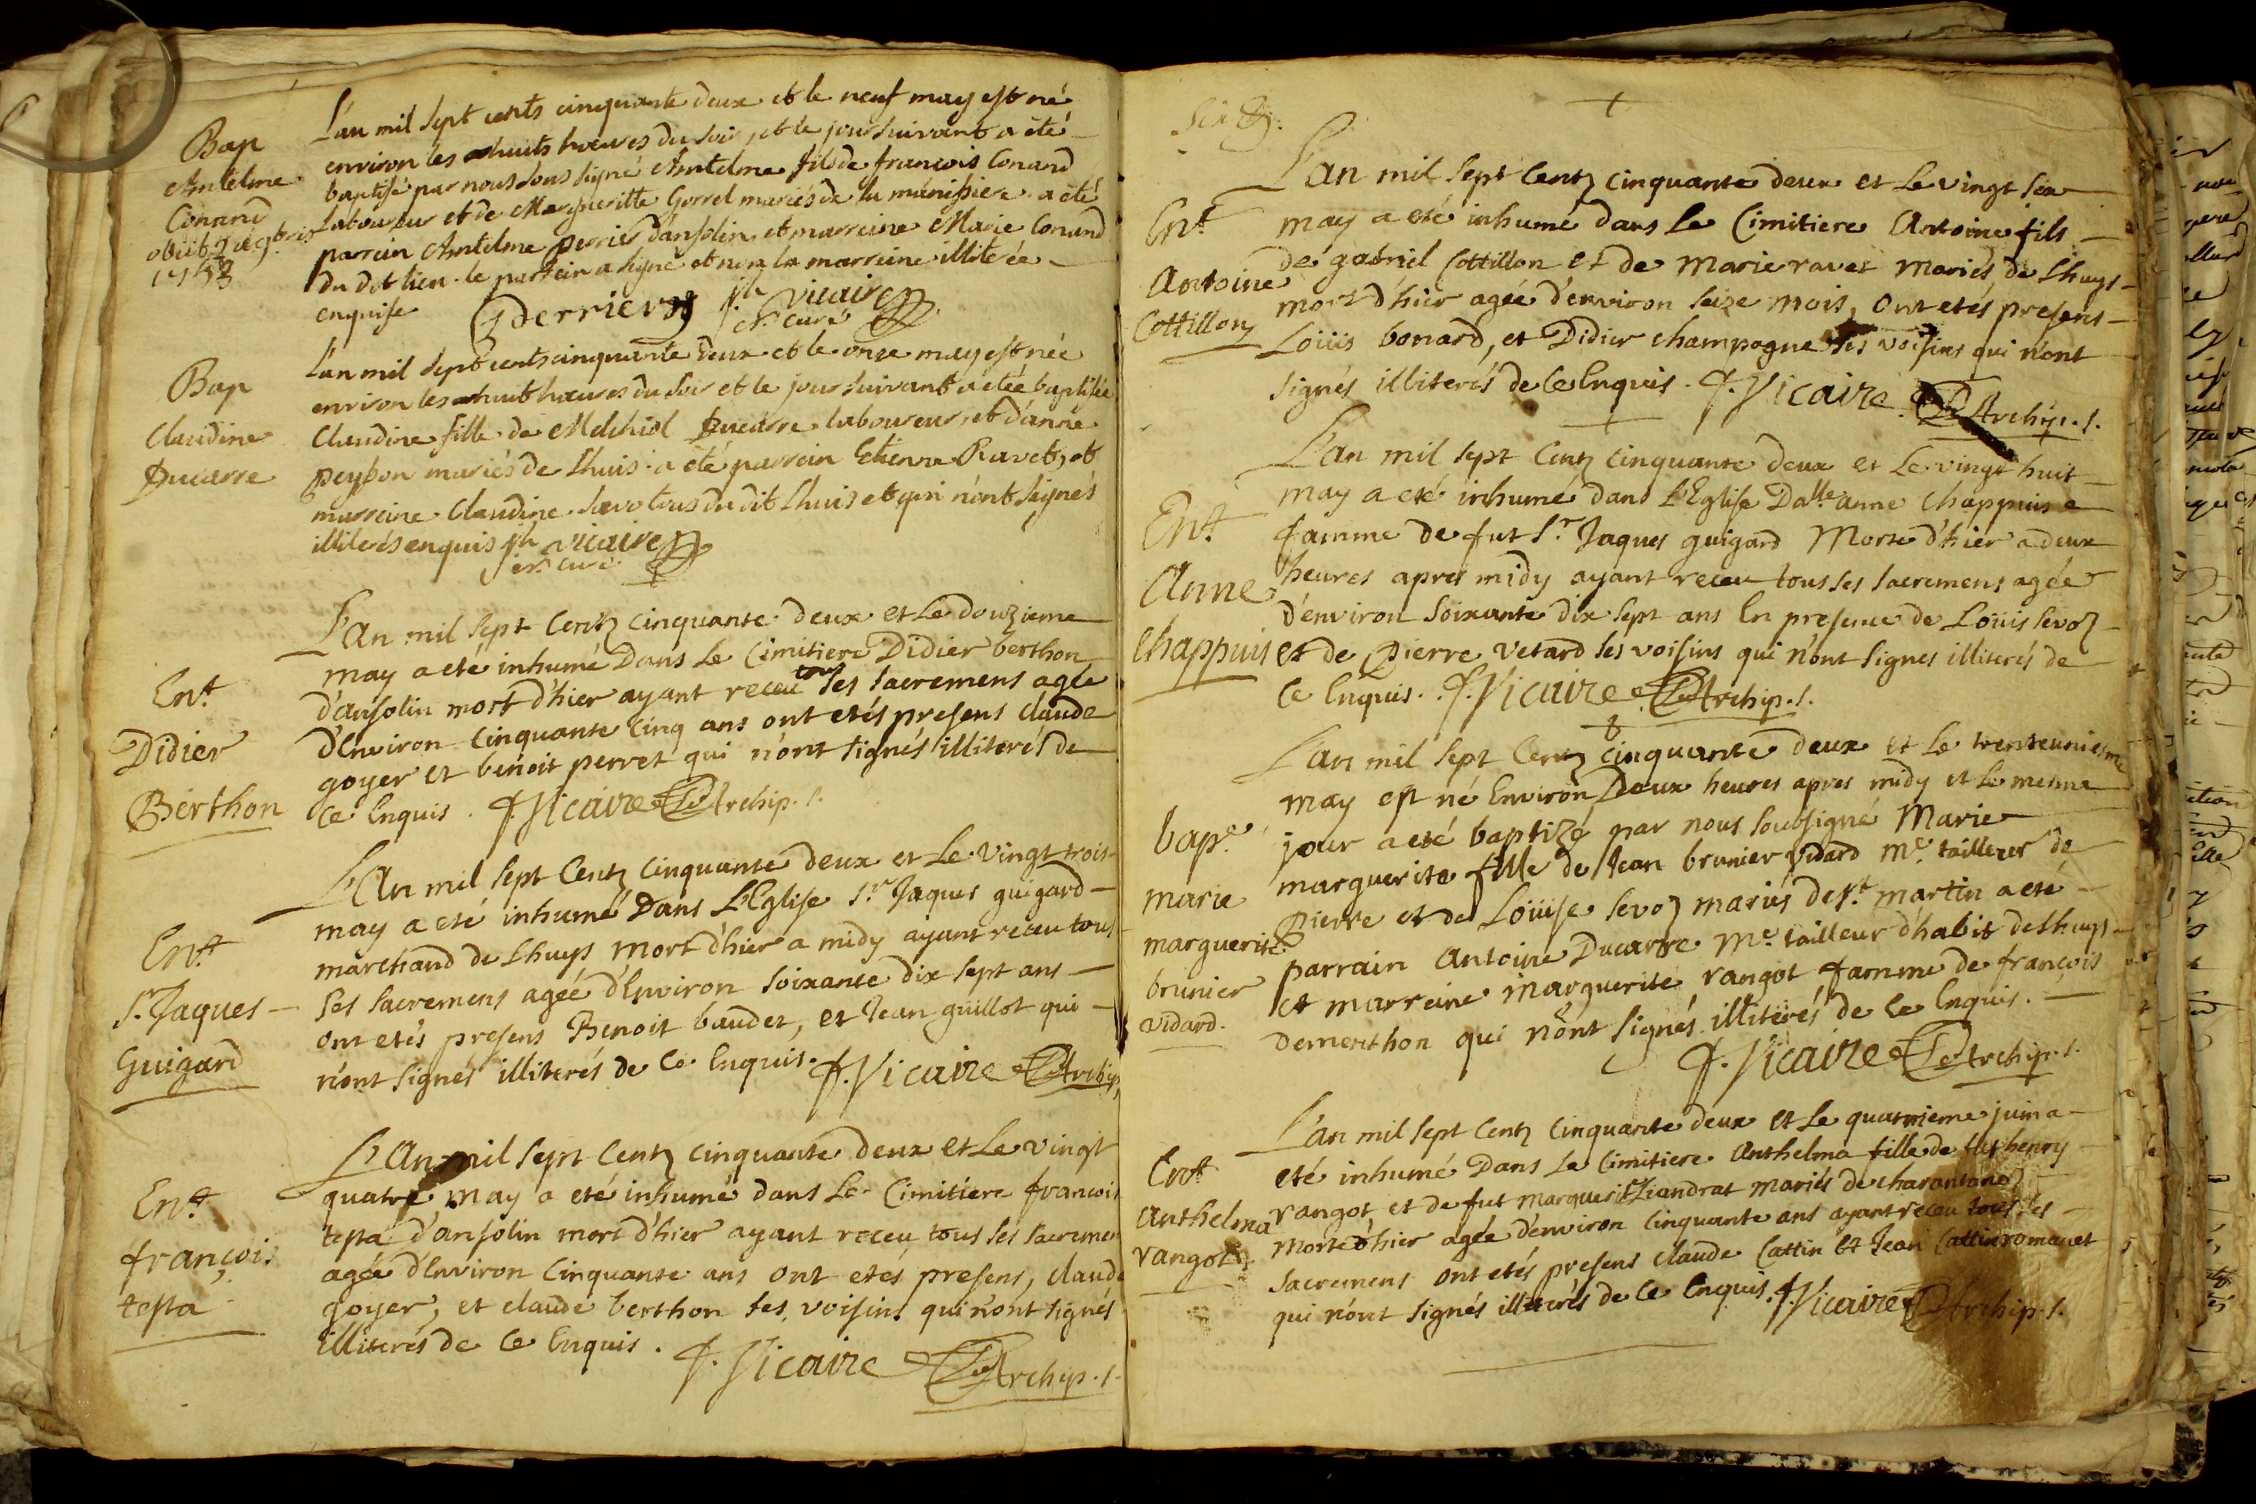 Bap
Antelme
Conand
obiit 2 decbris
1758
L'an mil sept cents cinquante deux et le neuf may est né
environ les huits heures du soir, et le jour suivant a été
baptisé par nous sous signé Antelme fils de francois Conand
Laboureur et de Margueritte Gorrel mariés de la manissiere a été
parrain Antelme perrier d'ansolin et marreine Marie Conand
du dit lieu. le parrein a signé et non la marreine illiterée
enquise
Perrier ph. vicaire
et curé
Bap
Claudine
Ducarre
L'an mil sept cents cinquante deux et le onze may est née
environ les huit heures du soir et le jour suivant a été baptisée
Claudine fille de Melchiol Ducarre laboureur, et d'anne
peysson mariés de Lhuis. a été parrein Etienne Ravet, et
marreine Claudine tous du dit Lhuis et qui n'ont signés
illiterés enquis ph. vicaire
et curé
Ent.
Didier
Berthon
L'an mil sept Centz cinquante deux et Le douzieme
may a eté inhumé Dans Le Cimitiere Didier berthon
d'ansolin mort d'hier ayant receu tous ses sacremens agée
d'Environ cinquante Cinq ans ont etés presens claude
goyer et benoit perret qui n'ont signés illiterés de
ce Enquis. f. Vicaire Archip. s.
Ent.
Sr. Jaques
Guigard
L'An mil sept Centz Cinquante deux et Le Vingt trois
may a eté inhumé Dans L'Eglise Sr. Jaques guigard
marchand de Lhuys Mort d'hier a midy ayant receu tous
ses sacremens agéé d'Environ soixante dix sept ans
ont etés presens Benoit baudet, et Jean guillot qui
n'ont signés illiterés de Ce Enquis. f. Vicaire Archip.
Ent.
françois
testa
L'An mil sept Centz cinquante deux et Le vingt
quatre may a eté inhumé dans Le Cimitiere francois
testa d'ansolin mort d'hier ayant receu tous ses sacremen
agée d'Environ Cinquante ans ont etés presens, claude
goyer, et claude berthon ses voisins qui n'ont signés
illiterés de Ce Enquis. f. Vicaire Archip. s.
Ent.
Antoine
Cottillon
L'An mil sept Centz Cinquante deux et Le vingt six
may a eté inhumé dans Le Cimitiere Antoine fils
de gabriel Cottillon et de Marie ravet Mariés de Lhuys
mort d'hier agée d'environ seize mois, ont etés presens
Loüis bonard, et Didier champagne ses voisins qui n'ont
signés illiterés de Ce Enquis. f. Vicaire Archip. s.
Ent.
Anne
Chappuis
L'An mil sept Centz Cinquante deux et Le vingt huit
may a eté inhumé dans L'Eglise Dalle anne Chappuis
famme de fut Sr. Jaques guigard Morte d'hier a deux
heures apres midy ayant receu tous ses sacremens agée
d'environ soixante dix sept ans En presence de Loüis sevoz
et de Pierre vetard ses voisins qui n'ont signes illiterés de
Ce Enquis. f. Vicaire Archip. s.
bape.
marie
marguerite
brunier
vidard.
L'an mil sept Centz Cinquante deux et Le trenteuniesme
may est né Environ Deux heures apres midy et Le mesme
jour a eté baptizé par nous soubsigné Marie
marguerite fille de Jean brunier vidard Me. tailleur de
pierre et de Loüise sevoz mariés de St. martin a eté
parrain Antoine Ducarre Me. tailleur d'habit de Lhuys
et marreine Marguerite rangot famme de françois
demerthon qui n'ont signés illiterés de Ce Enquis.
f. Vicaire Archip. s.
Ent.
anthelma
rangot
L'an mil sept Centz Cinquante deux et Le quatrieme juin a
eté inhumé Dans Le Cimitiere Anthelma fille de fut henry
rangot et de fut Marguerite Liandrat Mariés de charantonoz
Morte d'hier agée d'environ Cinquante ans ayant receu tous ses
sacremens ont etés presens claude Cattin et Jean Cattin romanet
qui n'ont signés illiterés de Ce Enquis. f. Vicaire Archip. s.